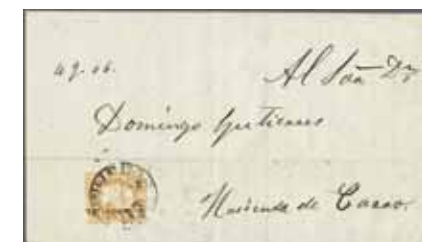 49-66.
Al Sor Dn
Domingo Gutierres
Hacienda de